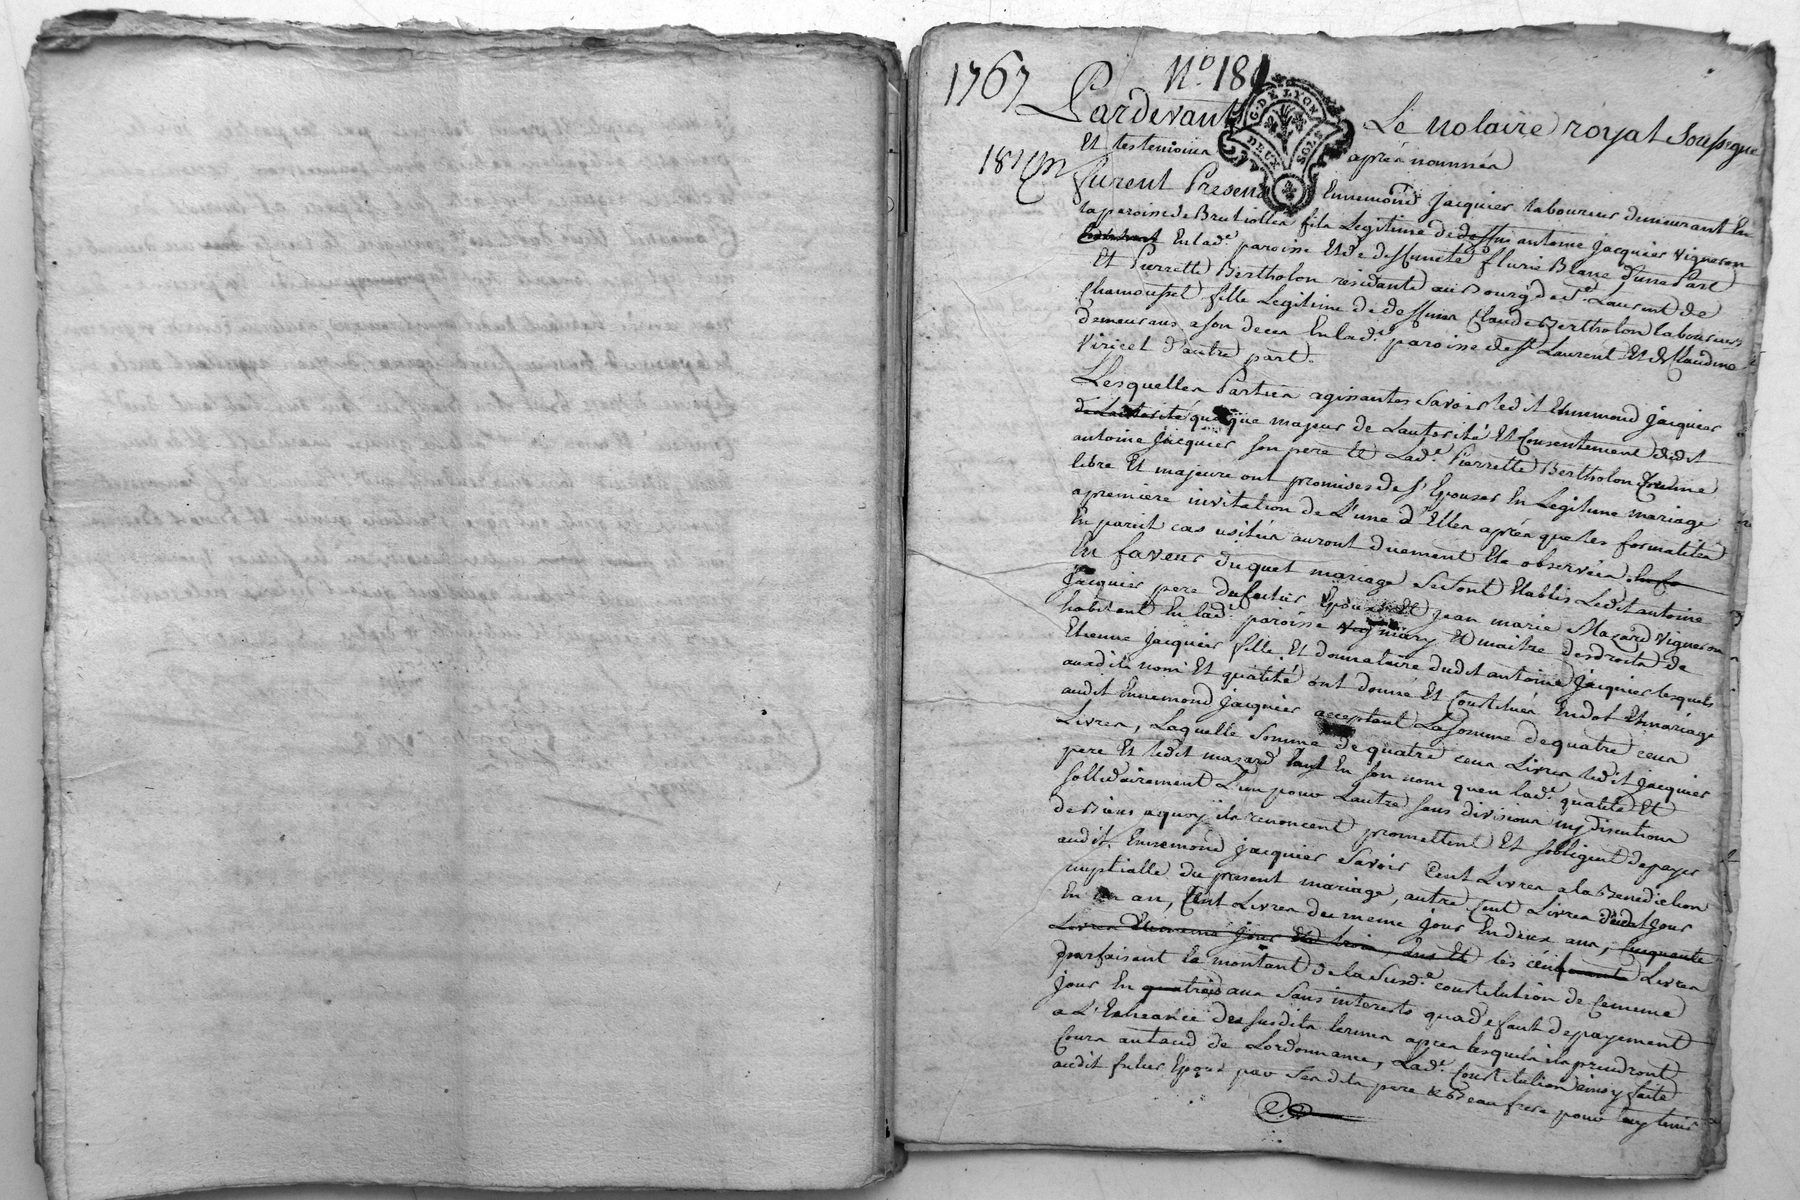 1767 N.o 181
G. DE LYON
DEUX SOLS
Pardevant Le notaire royal Soussigné
Et testemoins après nommés
18 Jun
furent Presens Ennemond Jacquier Laboureur demeurant En
la paroisse de Brulliolles fils Legitime de deffunt antoine Jacquier Vigneron
En lad.e paroisse Et de deffuncte flurie Blanc d'une Part
Et Pierrette Bertholon residante au Bourg de St Laurent de
Chamousset fille Legitime de deffunts Claude Bertholon laboureur
demeurant a son deces En lad.e paroisse de St Laurent Et de Claudine
Viricel d'autre part.
Lesquelles Parties agissantes Savoir ledit Ennemond Jacquier
de Lautorité quoique majeur de Lautorité Et Consentement dudit
antoine Jacquier son pere Et Lad.e Pierrette Bertholon comme
libre Et majeure ont promises de s'Epouser En Legitime mariage
a premiere invitation de L'une d'Elles après que les formalités
En pareil cas usitées auront duement Eté observées
En faveur duquel mariage Se sont Etablis Ledit antoine
Jacquier pere du futur Epoux Et Jean marie Mazard Vigneron
habitant En lad.e paroisse mary Et maitre des droits de
Etienne Jacquier fille Et donnataire dudit antoine Jacquier lesquels
auxdits noms Et qualité ont donné Et Constitués En dot Et mariage
audit Ennemond Jacquier acceptant La Somme de quatre cens
Livres, Laquelle Somme de quatre cens Livres ledit Jacquier
pere Et ledit mazard tant En son nom quen lad.e qualité Et
sollidairement L'un pour Lautre sans division ny discution
de Biens a quoy ils renoncent promettent Et s'obligent de payer
audit Ennemond Jacquier Savoir Cent Livres a la Benediction
nuptialle du present mariage, autre Cent Livres d'huy
En un an, Cent Livres de meme jour En deux ans, Cinquante
Livres Et meme jour En trois ans Et les cent Livres
parfaisant le montant de la Susd.e constitution de Cememe
jour En quatre ans Sans interests qua defaut de payement
a L'Echeance des susdits termes apres lesquels ils prendront
Cours au taud de Lordonnance, Lad.e Constitution ainsy faite
audit futur Epoux par Sesdits pere & Beaufrere pour luy tenir